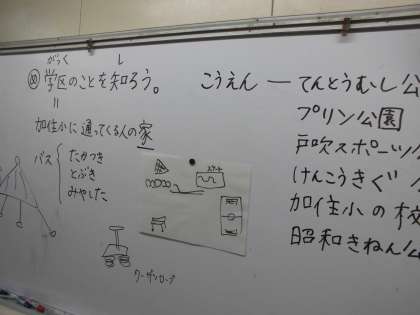 がっく　し
め 学区のことを知ろう。
加住小に通ってくる人の家
バス たかつき
とぶき
みやした
こうえん ― てんとうむし公
プリン公園
戸吹スポーツ
けんこうきぐ
加住小の校
昭和きねん公
スタート